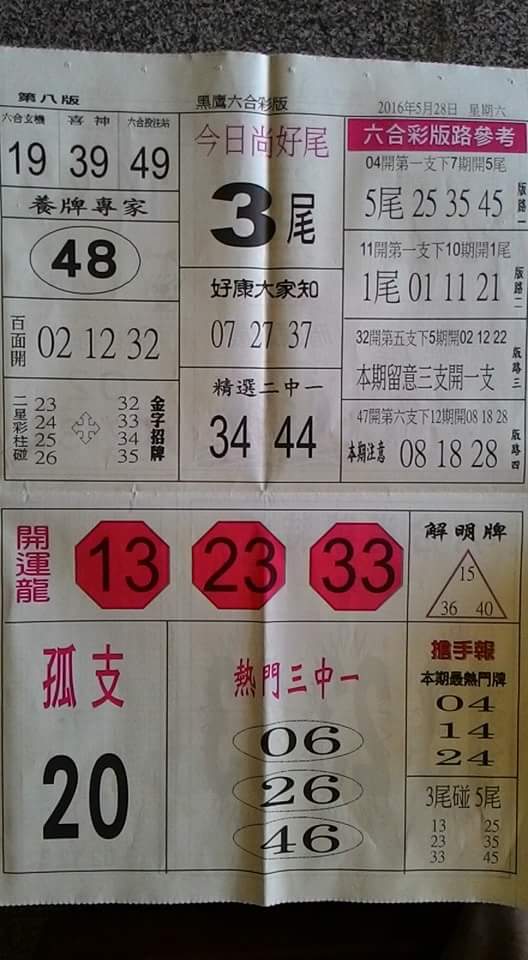 第八版
黑鷹六合彩版
2016年5月28日 星期六
六合玄機 喜神 六合投注站
19 39 49
養牌專家
48
百面開 02 12 32
二星彩柱碰
23 32
24 33
25 34
26 35
金字招牌
今日尚好尾
3尾
好康大家知
07 27 37
精選二中一
34 44
六合彩版路參考
04開第一支下7期開5尾
5尾 25 35 45
版路一
11開第一支下10期開1尾
1尾 01 11 21
版路二
32開第五支下5期開02 12 22
本期留意三支開一支
版路三
47開第六支下12期開08 18 28
本期注意 08 18 28
版路四
開運龍
13 23 33
解明牌
15
36 40
孤支
20
熱門三中一
06
26
46
搶手報
本期最熱門牌
04
14
24
3尾碰5尾
13 25
23 35
33 45